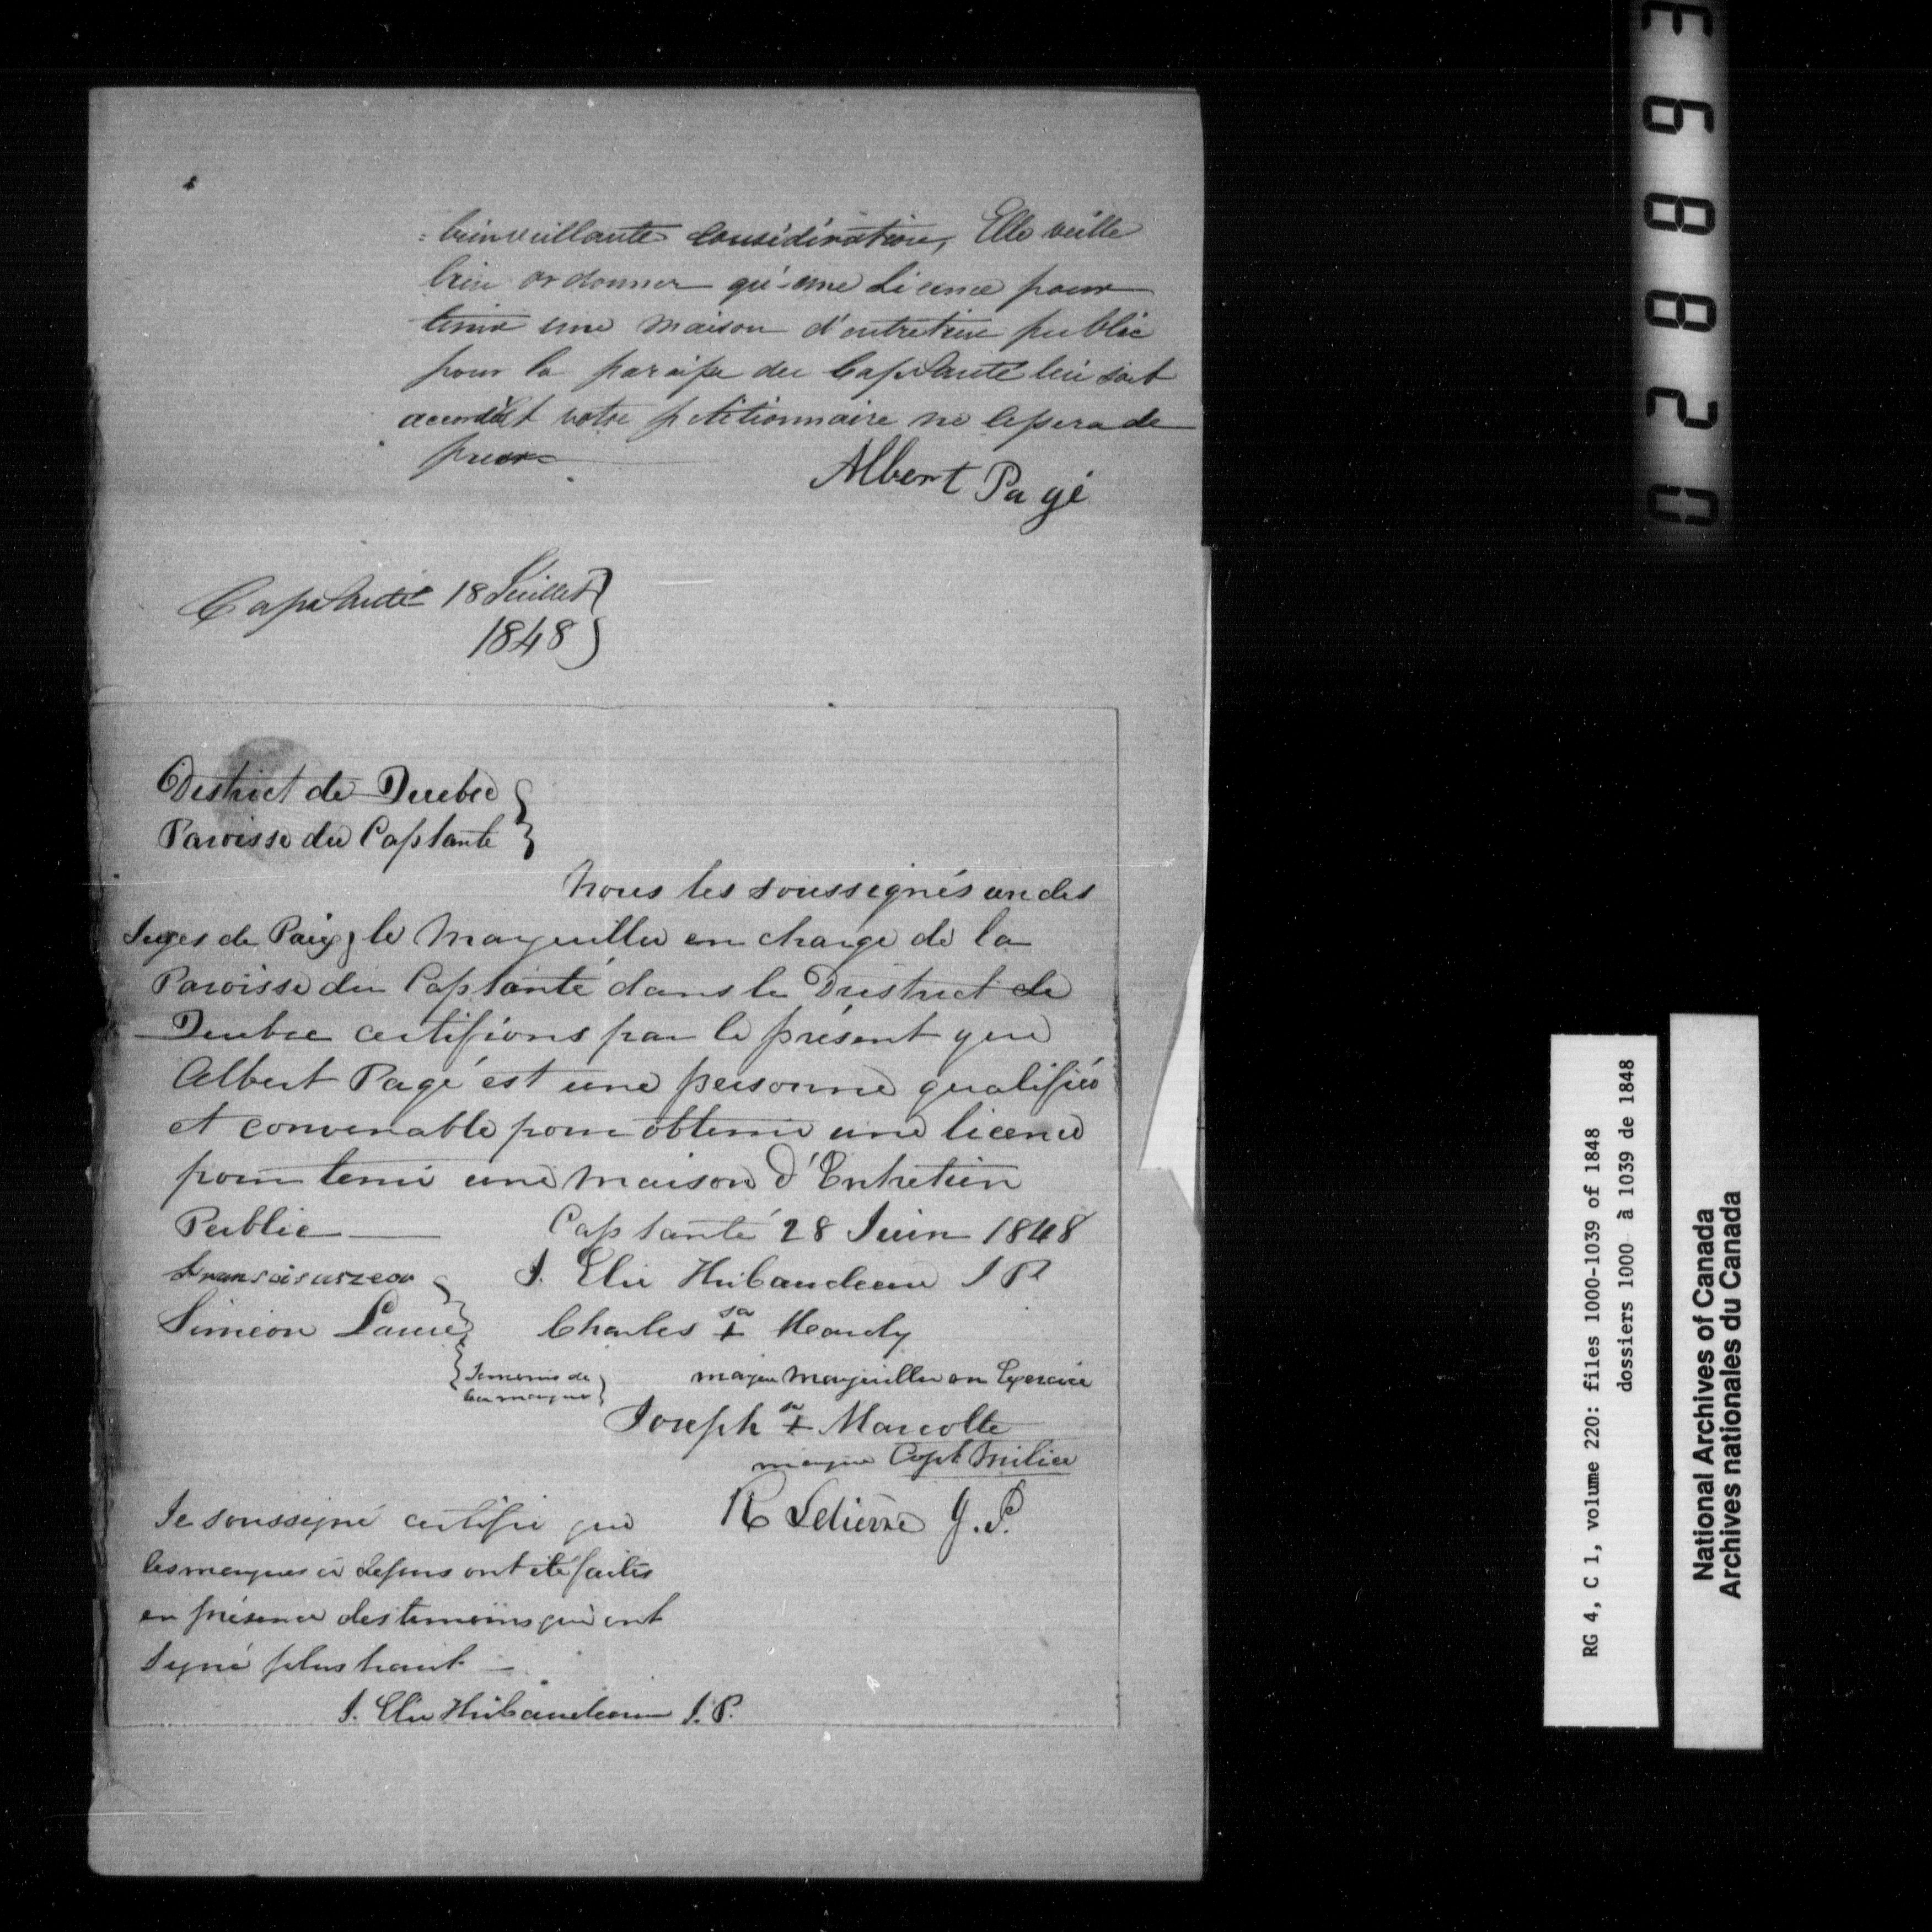 bienveillante considération, Elle veille
bien ordonner qu'une Licence pour
tenir une maison d'entretien public
pour la paroisse du Cap Santé lui soit
accordé et votre pétitionnaire ne cessera de
prier
Albert Pagé
Cap Santé 18 Juillet
1848
District de Quebec
Paroisse du Cap Santé
Nous les soussignés un des
Juges de Paix, le Marguiller en charge de la
Paroisse du Cap Santé dans le District de
Quebec certifions par le présent que
Albert Pagé est une personne qualifiée
et convenable pour obtenir une licence
pour tenir une maison d'Entretien
Public Cap Santé 28 Juin 1848
J. Elie Thibaudeau J P
Simeon
Charles sa + Hardy
Temoins de
les marques
marque Marguiller en Exercice
Joseph sa + Marcotte
marque Capt Milice
R Lelièvre J.P.
Je soussigné certifie que
les marques ci dessus ont été faites
en présence des temoins qui ont
signé plus haut
J. Elie Thibaudeau J.P.
0 2 8 8 6 3
RG 4, C 1, volume 220: files 1000-1039 of 1848
dossiers 1000 à 1039 de 1848
National Archives of Canada
Archives nationales du Canada